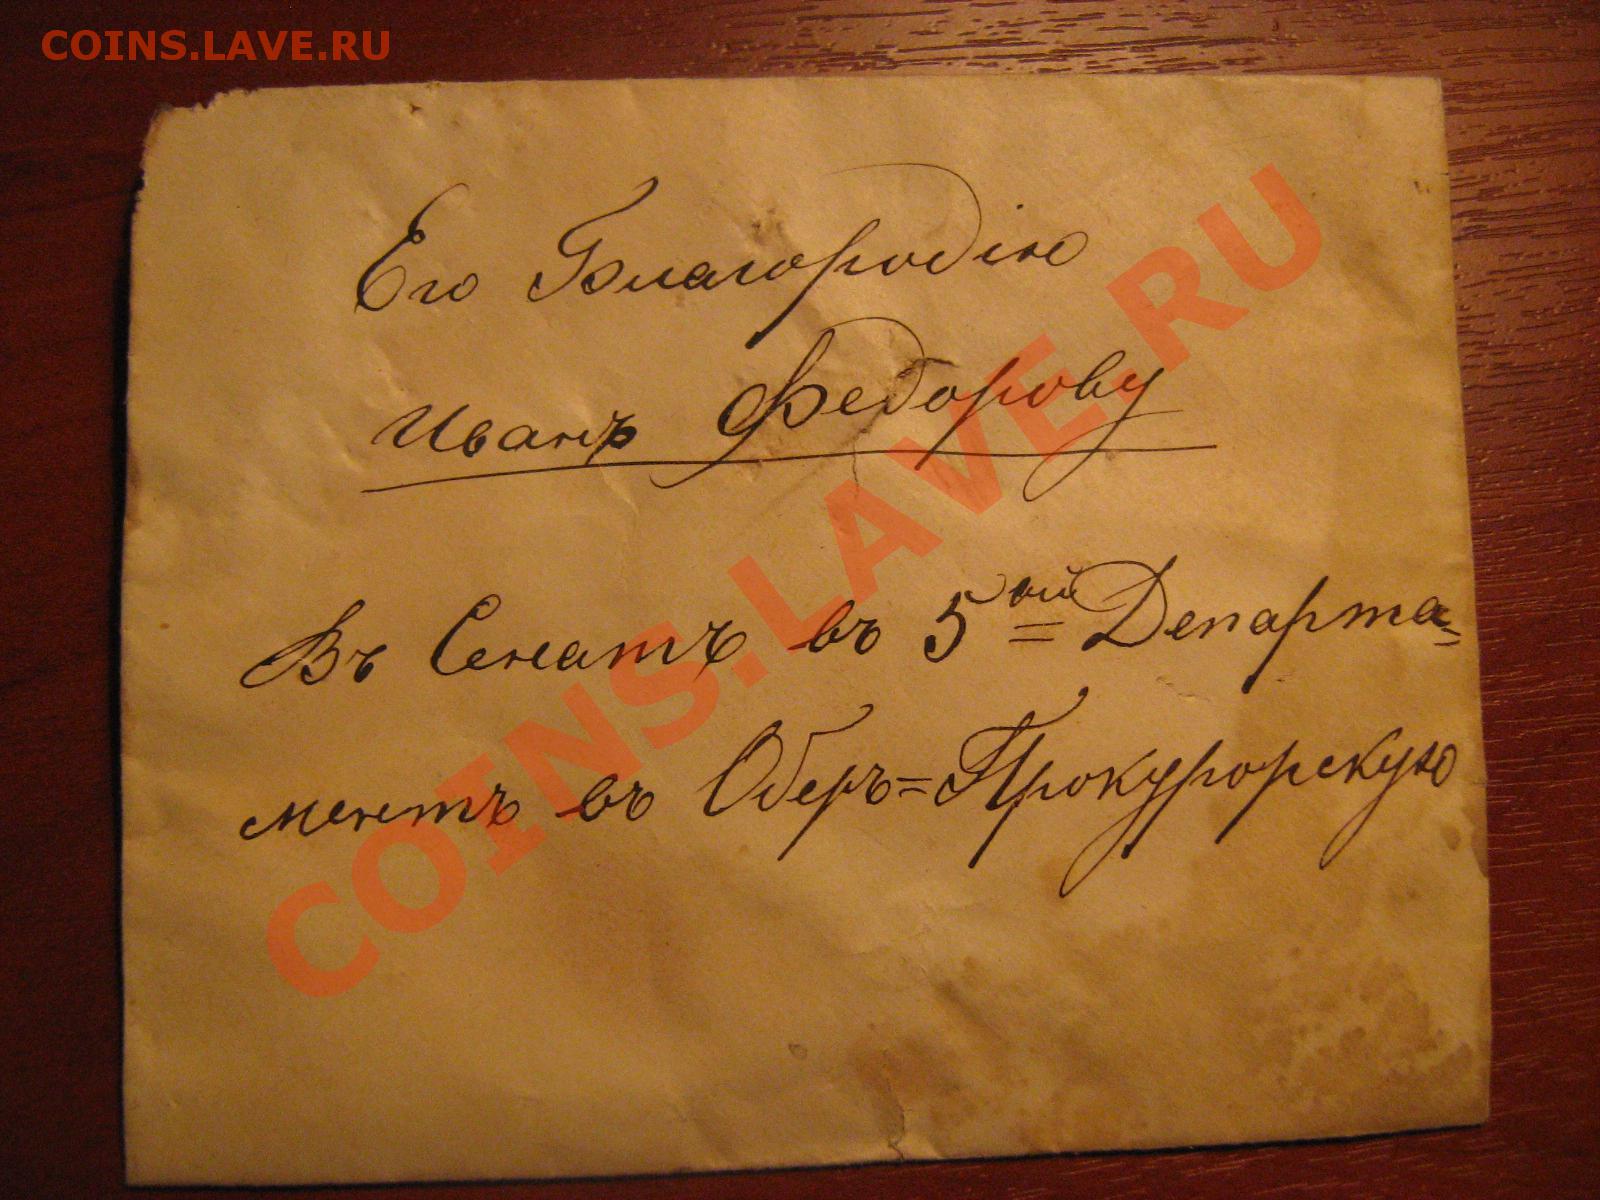 COINS.LAVE.RU
Его Благородію
Иванъ Федорову
Въ Сенатъ въ 5ый Департа=
ментъ въ Оберъ=Прокурорскую
COINS.LAVE.RU